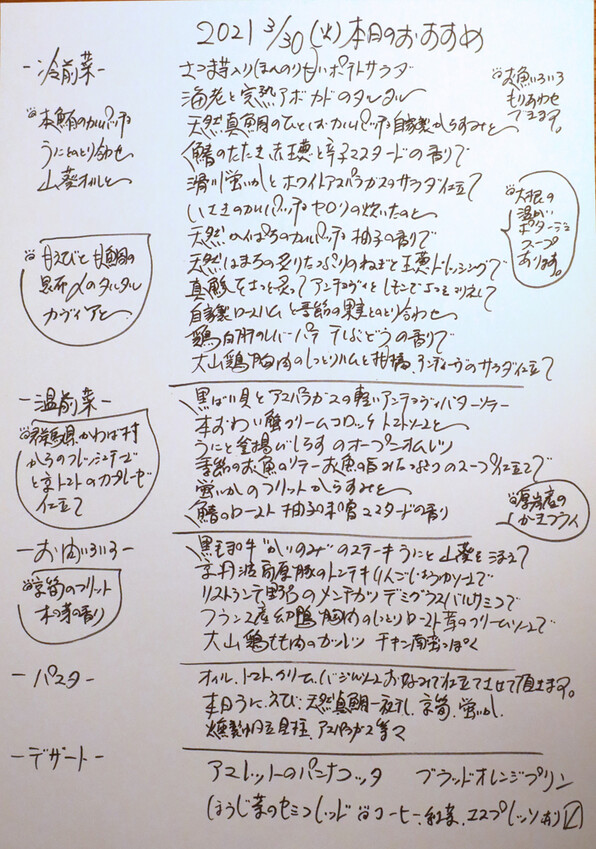 2021 3/30 (火) 本日のおすすめ
-冷前菜-
さつま芋入りほんのり甘いポテトサラダ
海老と完熟アボカドのタルタル
天然真鯛のひとしおカルパッチョ 自家製からすみと
鰆のたたき 赤玉葱と辛子マスタードの香りで
滑川蛍いかとホワイトアスパラガスのサラダ仕立て
いさきのカルパッチョ セロリの炊いたのと
天然かんぱちのカルパッチョ 柚子の香りで
天然はまちの炙りたっぷりのねぎと玉葱ドレッシングで
真鯵をさっと炙って アンチョヴィとレモンでよっとマリネして
自家製ロースハムと季節の果実とのとり合わせ
鶏白肝のレバーパテ 干しぶどうの香りで
大山鶏胸肉のしっとりハムと柑橘、アンディーヴのサラダ仕立て
お魚いろいろ
もりあわせ
できます。
本鮪のカルパッチョ
うにとのとり合わせ
山葵オイルと
大根の
温かい
ポタージュ
スープ
あります。
甘えびと甘鯛の
昆布〆のタルタル
カヴィアと
-温前菜-
黒ばい貝とアスパラガスの軽いアンチョヴィバターソテー
本ずわい蟹クリームコロッケ トマトソースと
うにと釜揚げしらすのオープンオムレツ
季節のお魚のソテー お魚の旨みたっぷりのスープ仕立てで
蛍いかのフリット からすみと
鰆のロースト 柚子味噌マスタードの香り
群馬県かわば村
からのフレッシュチーズ
と京トマトのカプレーゼ
仕立て
厚岸産の
かきフライ
-お肉いろいろ-
黒毛和牛"かいのみ"のステーキ うにと山葵をそえて
京丹波高原豚のトンテキ りんごしょうがソースで
リストランテ野呂のメンチカツ デミグラスバルサミコで
フランス産幼鴨胸肉のしっとりロースト 茸のクリームソースで
大山鶏もも肉のカツレツ チキン南蛮っぽく
京筍のフリット
木の芽の香り
-パスタ-
オイル、トマト、クリーム、バジルソース お好みで仕立てさせて頂きます。
本日うに、えび、天然真鯛一夜干し、京筍、蛍いか、
燻製帆立貝柱、アスパラガス等々
-デザート-
アマレットのパンナコッタ ブラッドオレンジプリン
ほうじ茶のセミフレッド コーヒー、紅茶、エスプレッソ有り